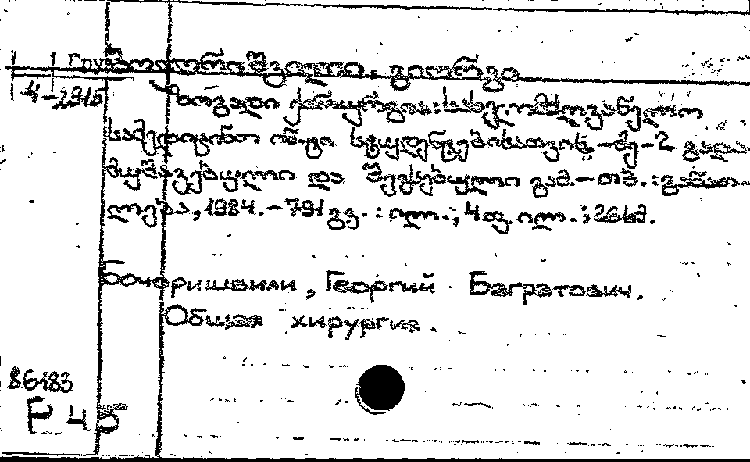 Груз ბოჭორიშვილი, გიორგი
4-2915 ზოგადი ქირურგია: სახელ.
სამედიცინო სტუდენტებისათვის.-მე-2 გადა-
მუშავებული და შევსებული გამ.-თბ.:განათ-
ლება,1984.-791გვ.:ილ.;4ფ.ილ.;26სმ.
Бочоришвили, Георгий Багратович.
Общая хирургия.
86183
Р 4 Б